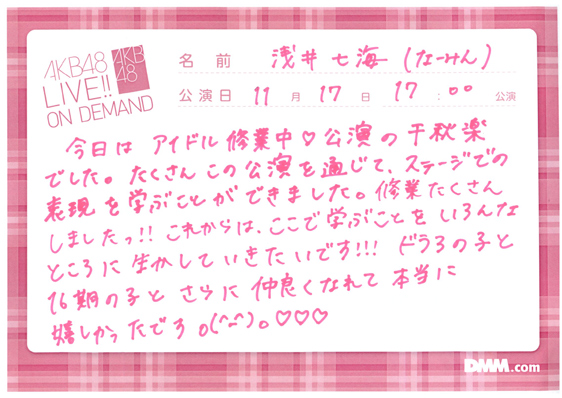 AKB48
LIVE!!
ON DEMAND
AKB
48
名前 浅井七海 (なーみん)
公演日 11月17日 17:00 公演
今日は アイドル修業中♡公演の千秋楽
でした。たくさんこの公演を通じて、ステージでの
表現を学ぶことができました。修業たくさん
しましたっ!! これからは、ここで学ぶことをいろんな
ところに生かしていきたいです!!! ドラ3の子と
16期の子とさらに仲良くなれて本当に
嬉しかったです o(^-^)o ♡♡♡
DMM.com